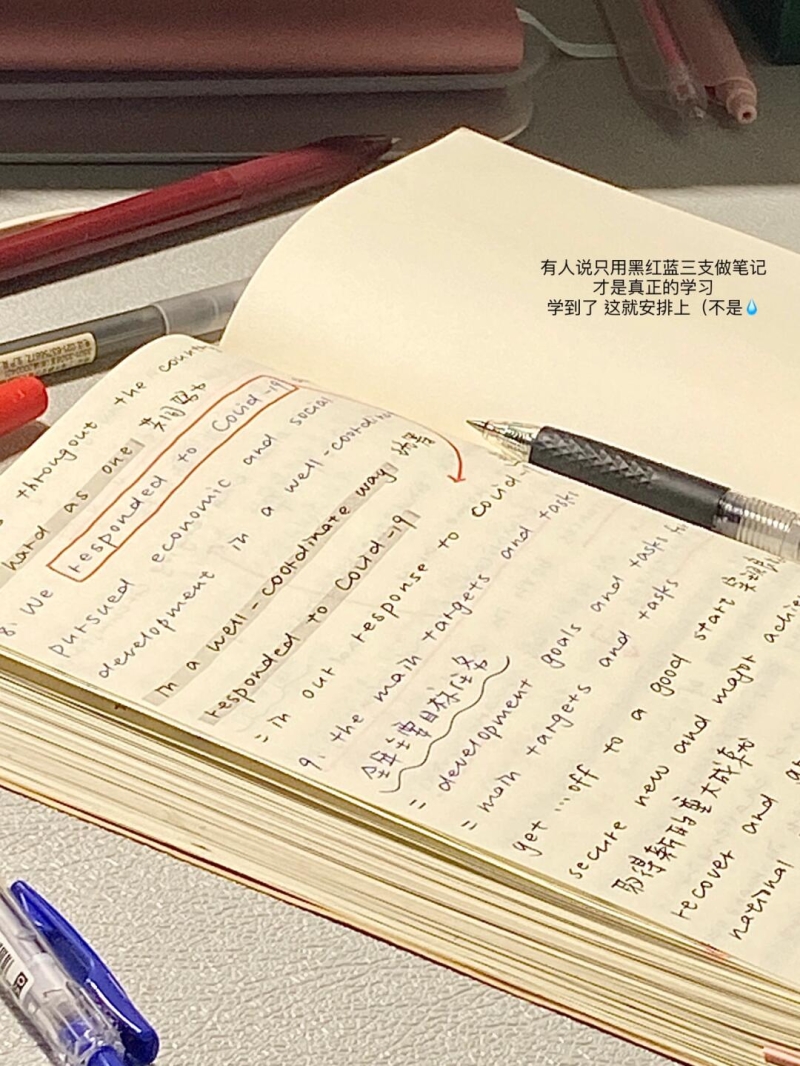 有人说只用黑红蓝三支做笔记
才是真正的学习
学到了 这就安排上（不是💧
througout the count
hard as one 共同努力
8. We responded to Covid-19
pursued economic and social
development in a well-coordin
in a well-coordinate way 统筹
responded to Covid-19
= in our response to covid
9. the main targets and tasks
全年主要目标任务
= development goals and tasks for
= main targets and tasks
get ... off to a good start 实现
secure new and major achie
取得新的重大成就
recover and
national